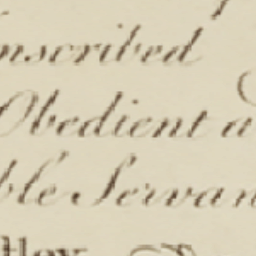 nscribed
Obedient a
ble Servan
tley